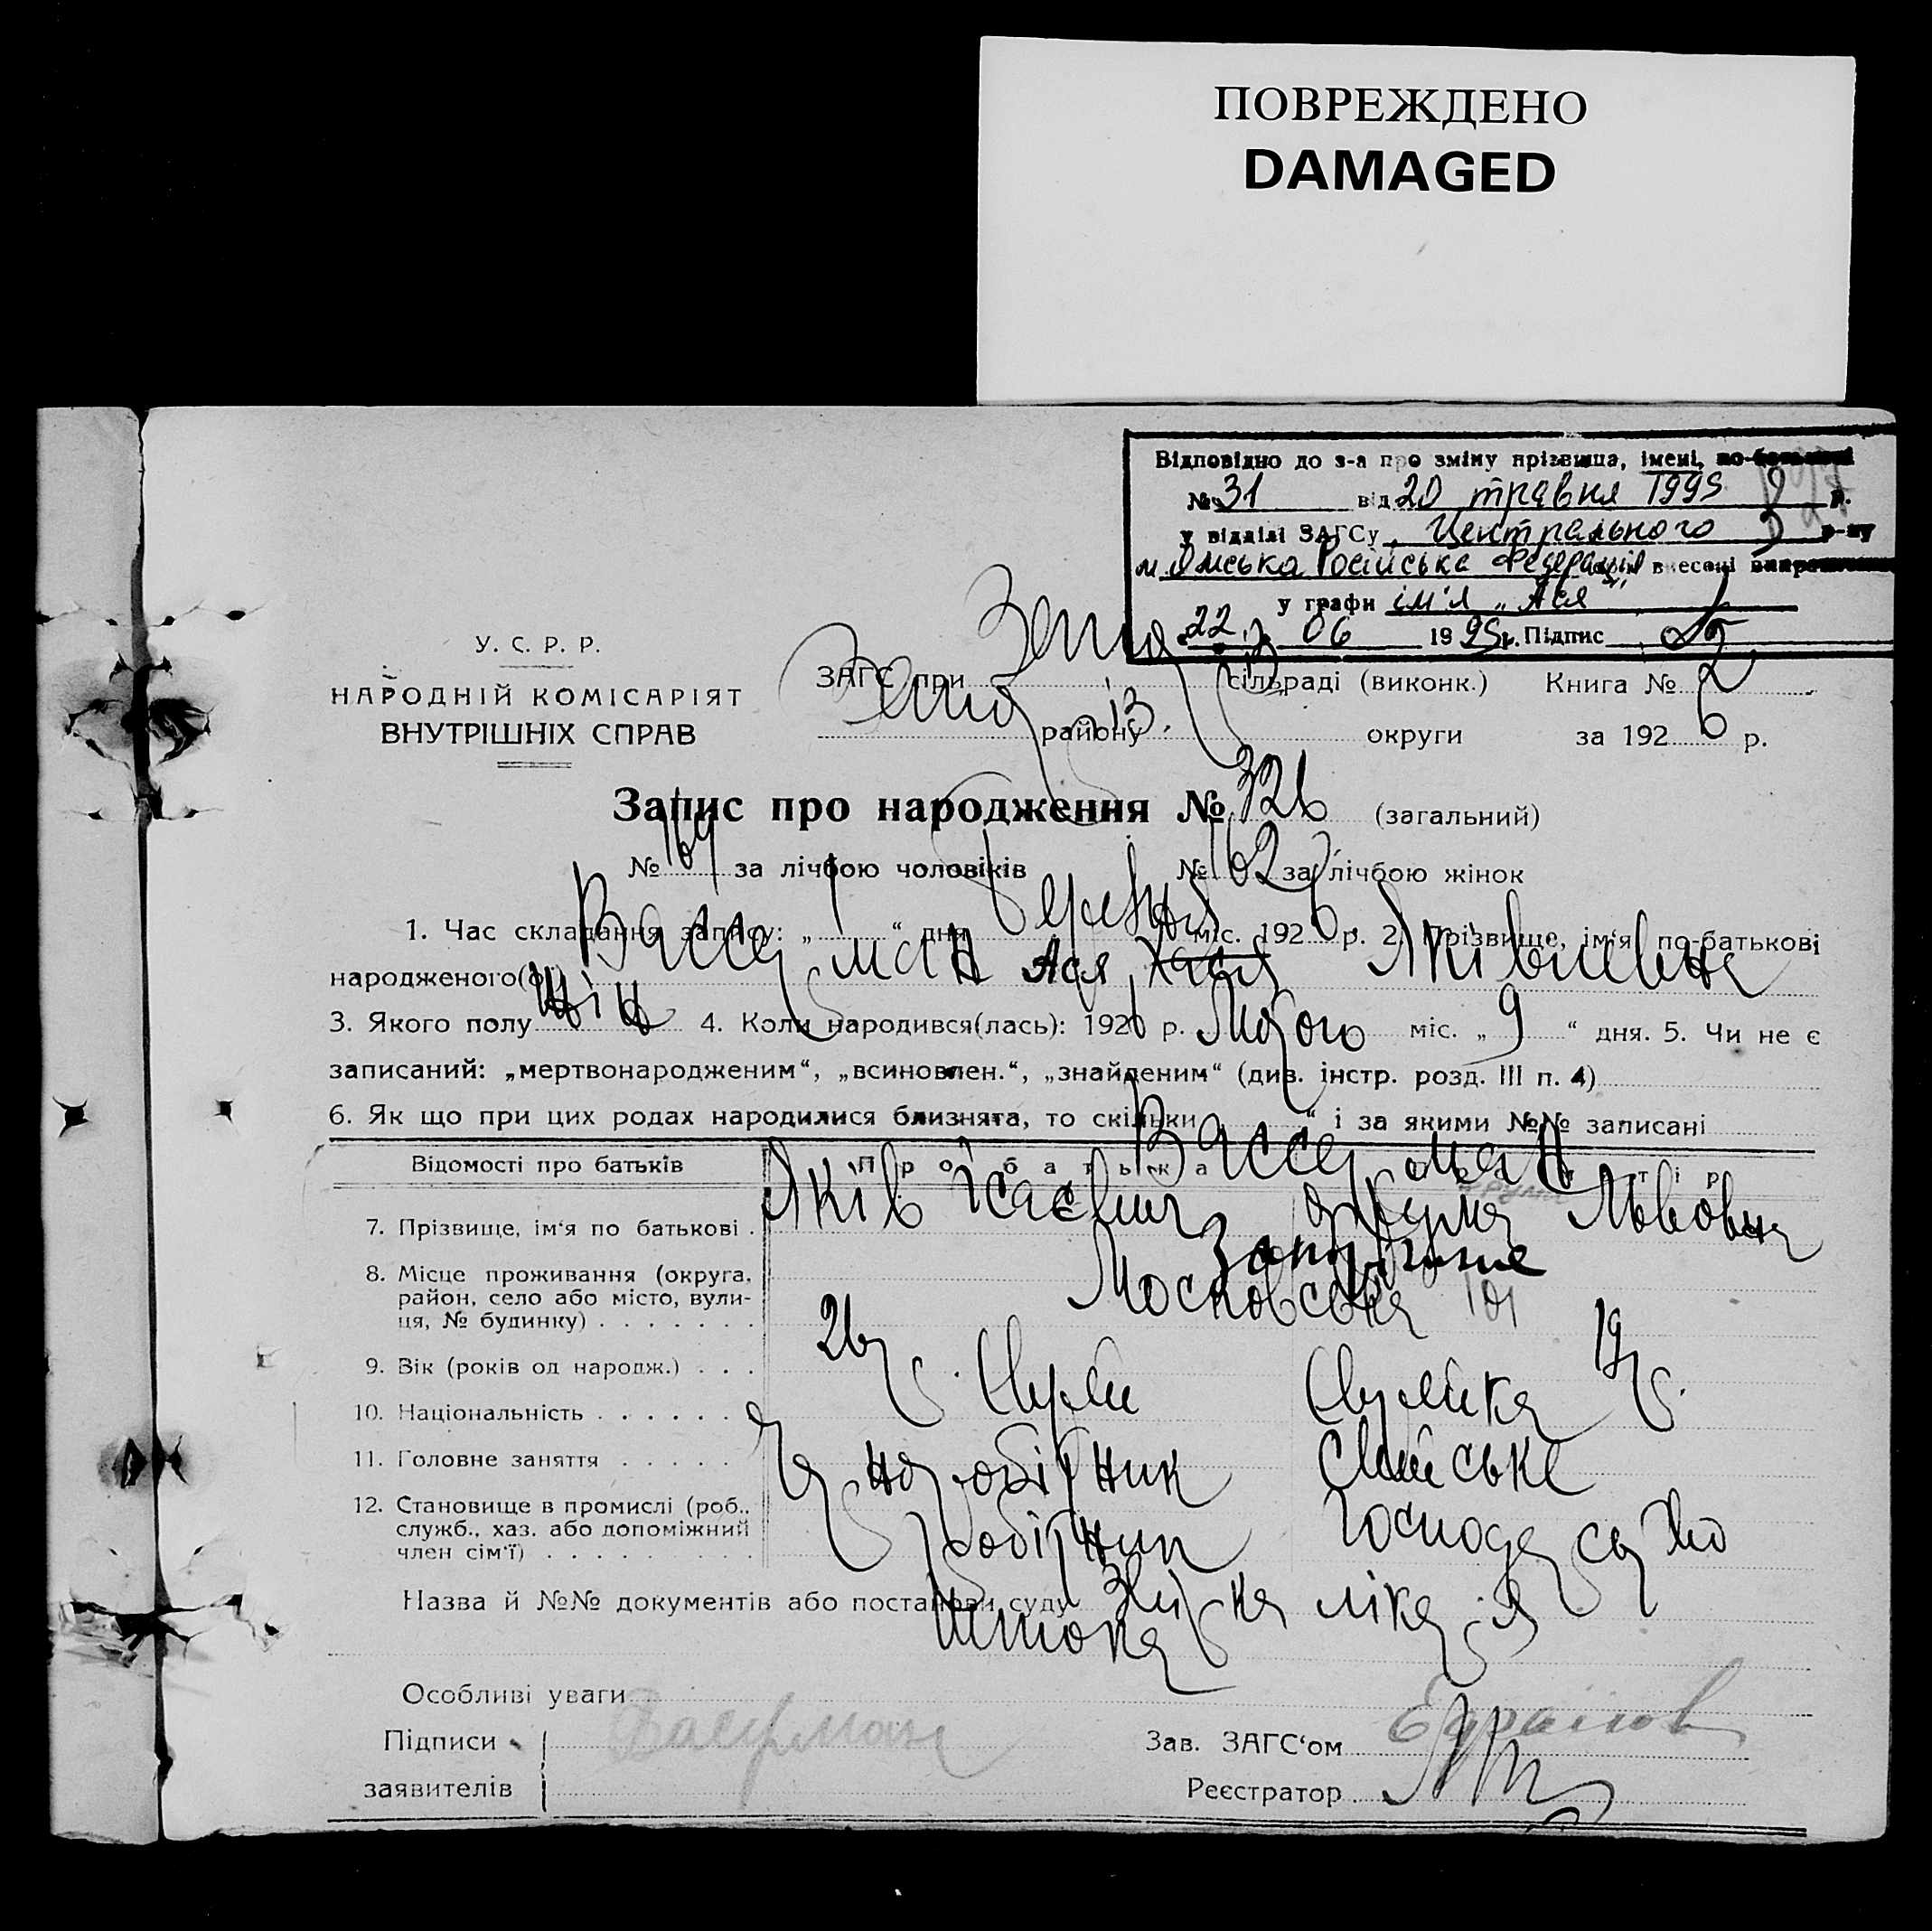 ПОВРЕЖДЕНО
DAMAGED
Відповідно до з-а про зміну прізвища, імені,
№ 31 від 20 травня 1995 р.
у відділі ЗАГСу Центрального р-ну
м. Омська Російська Федерація внесені
у графи ім'я „Ася"
22 06 1995р. Підпис
У. С. Р. Р.
НАРОДНІЙ КОМІСАРІЯТ
ВНУТРІШНІХ СПРАВ
ЗАГС при сільраді (виконк.) Книга № 2
району округи за 1926 р.
Запис про народження № 326 (загальний)
№ 164 за лічбою чоловіків № 162 за лічбою жінок
1. Час складання запису: „ “ дня Червня міс. 1926 р. 2. Прізвище, ім‘я, по-батькові
народженого(ої) Вассерман Ася Хася Яківлевна
3. Якого полу жін 4. Коли народився(лась): 1926 р. Лютого міс. „ 9 “ дня. 5. Чи не є
записаний: „мертвонародженим“, „всиновлен.“, „знайденим“ (див. інстр. розд. III п. 4)
6. Як що при цих родах народилися близнята, то скільки “ і за якими №№ записані
Відомості про батьків Про батька тір
Вассерман
7. Прізвище, ім‘я по батькові . Яків Ісаєвич Фрума Львовна
8. Місце проживання (округа, район, село або місто, вулиця, № будинку) Запоріжжє
Московська 101
9. Вік (років од народж.) . . . 26 19
10. Національність
11. Головне заняття робітник Хатнє
12. Становище в промислі (роб., служб., хаз. або допоміжний член сім‘ї) робітник Господарство
Назва й №№ документів або постанови суду лікаря
Особливі уваги
Підписи Васерман Зав. ЗАГС‘ом
заявителів Реєстратор